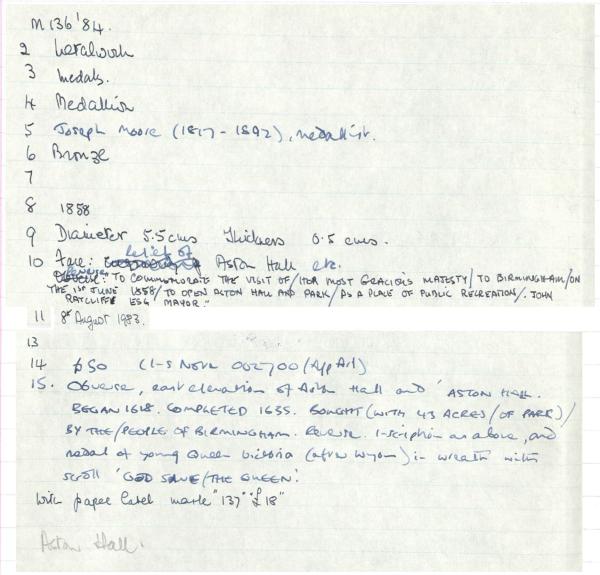 M136'84.
2 Metalwork
3 Medals.
4 Medallion
5 Joseph Moore (1817-1892), medallist.
6 Bronze
7
8 1858
9 Diameter 5.5cms Thickness 0.5 cms.
10 Face: relief of Aston Hall etc.
Reverse: "TO COMMEMORATE THE VISIT OF/HER MOST GRACIOUS MAJESTY/TO BIRMINGHAM/ON
THE 1ST JUNE 1858/TO OPEN ASTON HALL AND PARK/AS A PLACE OF PUBLIC RECREATION/. JOHN
RATCLIFF ESQ/ MAYOR."
11 8th August 1983.
13
14 £50 (1-5 Nov 002700/App Art)
15. Obverse, east elevation of Aston Hall and 'ASTON HALL.
BEGAN 1618. COMPLETED 1635. BOUGHT (WITH 43 ACRES/OF PARK)/
BY THE/PEOPLE OF BIRMINGHAM. Reverse. Inscription as above, and
medal of young Queen Victoria (after Wyon) in wreath with
scroll 'GOD SAVE/THE QUEEN'.
With paper label marked "137" "£18"
Aston Hall.